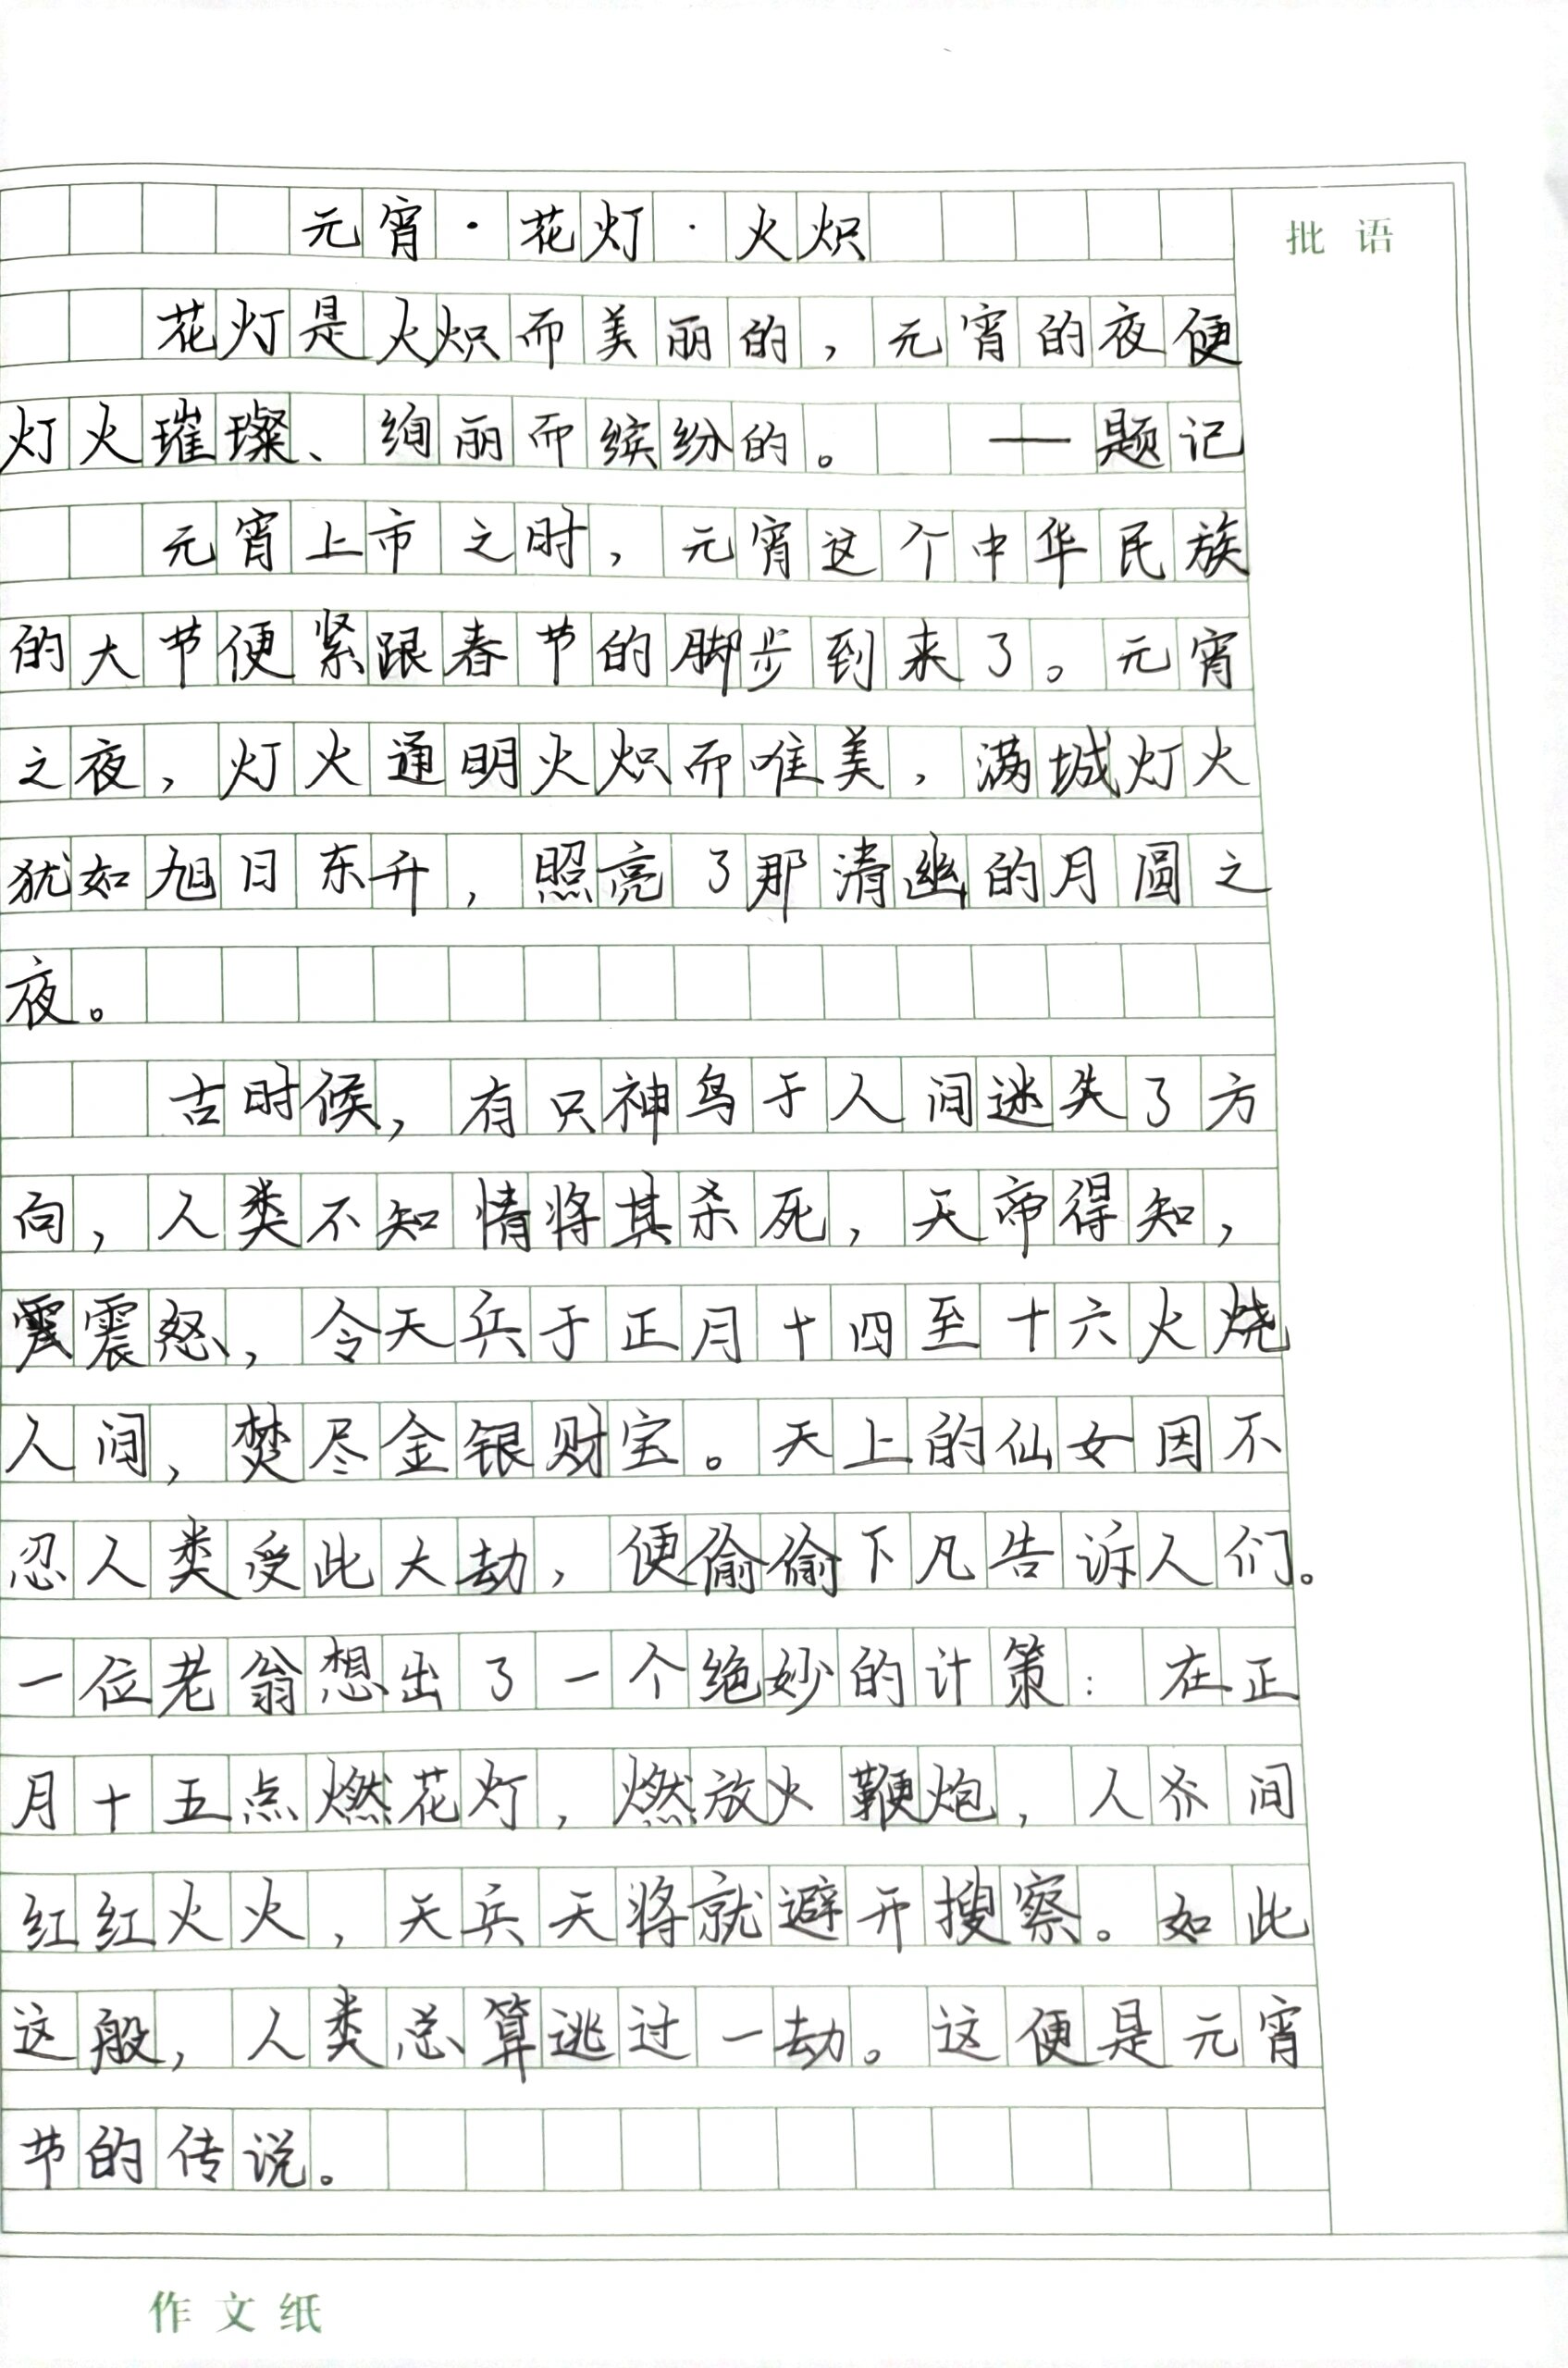 元宵·花灯·火炽
批语
花灯是火炽而美丽的，元宵的夜便
灯火璀璨、绚丽而缤纷的。 ——题记
元宵上市之时，元宵这个中华民族
的大节便紧跟春节的脚步到来了。元宵
之夜，灯火通明火炽而唯美，满城灯火
犹如旭日东升，照亮了那清幽的月圆之
夜。
古时候，有只神鸟于人间迷失了方
向，人类不知情将其杀死，天帝得知，
震怒，令天兵于正月十四至十六火烧
人间，焚尽金银财宝。天上的仙女因不
忍人类受此大劫，便偷偷下凡告诉人们。
一位老翁想出了一个绝妙的计策：在正
月十五点燃花灯，燃放火鞭炮，人间
红红火火，天兵天将就避开搜察。如此
这般，人类总算逃过一劫。这便是元宵
节的传说。
作文纸